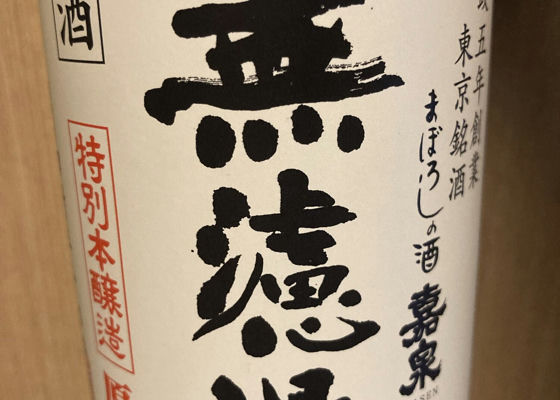 五年創業
東京銘酒
まぼろしの酒 嘉泉
無濾過
酒
特別本醸造
原